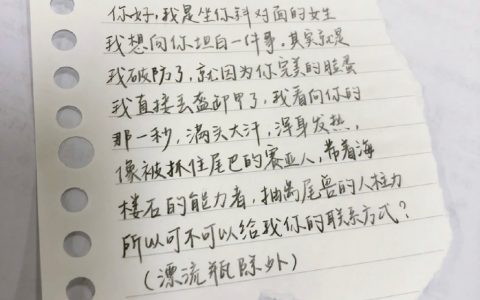 你好,我是坐你斜对面的女生
我想向你坦白一件事.其实就是
我破防了,就因为你完美的脸蛋
我直接丢盔卸甲了,我看向你的
那一秒,满头大汗,浑身发热,
像被抓住尾巴的赛亚人,带着海
楼石的能力者,抽离尾兽的人柱力
所以可不可以给我你的联系方式?
(漂流瓶除外)